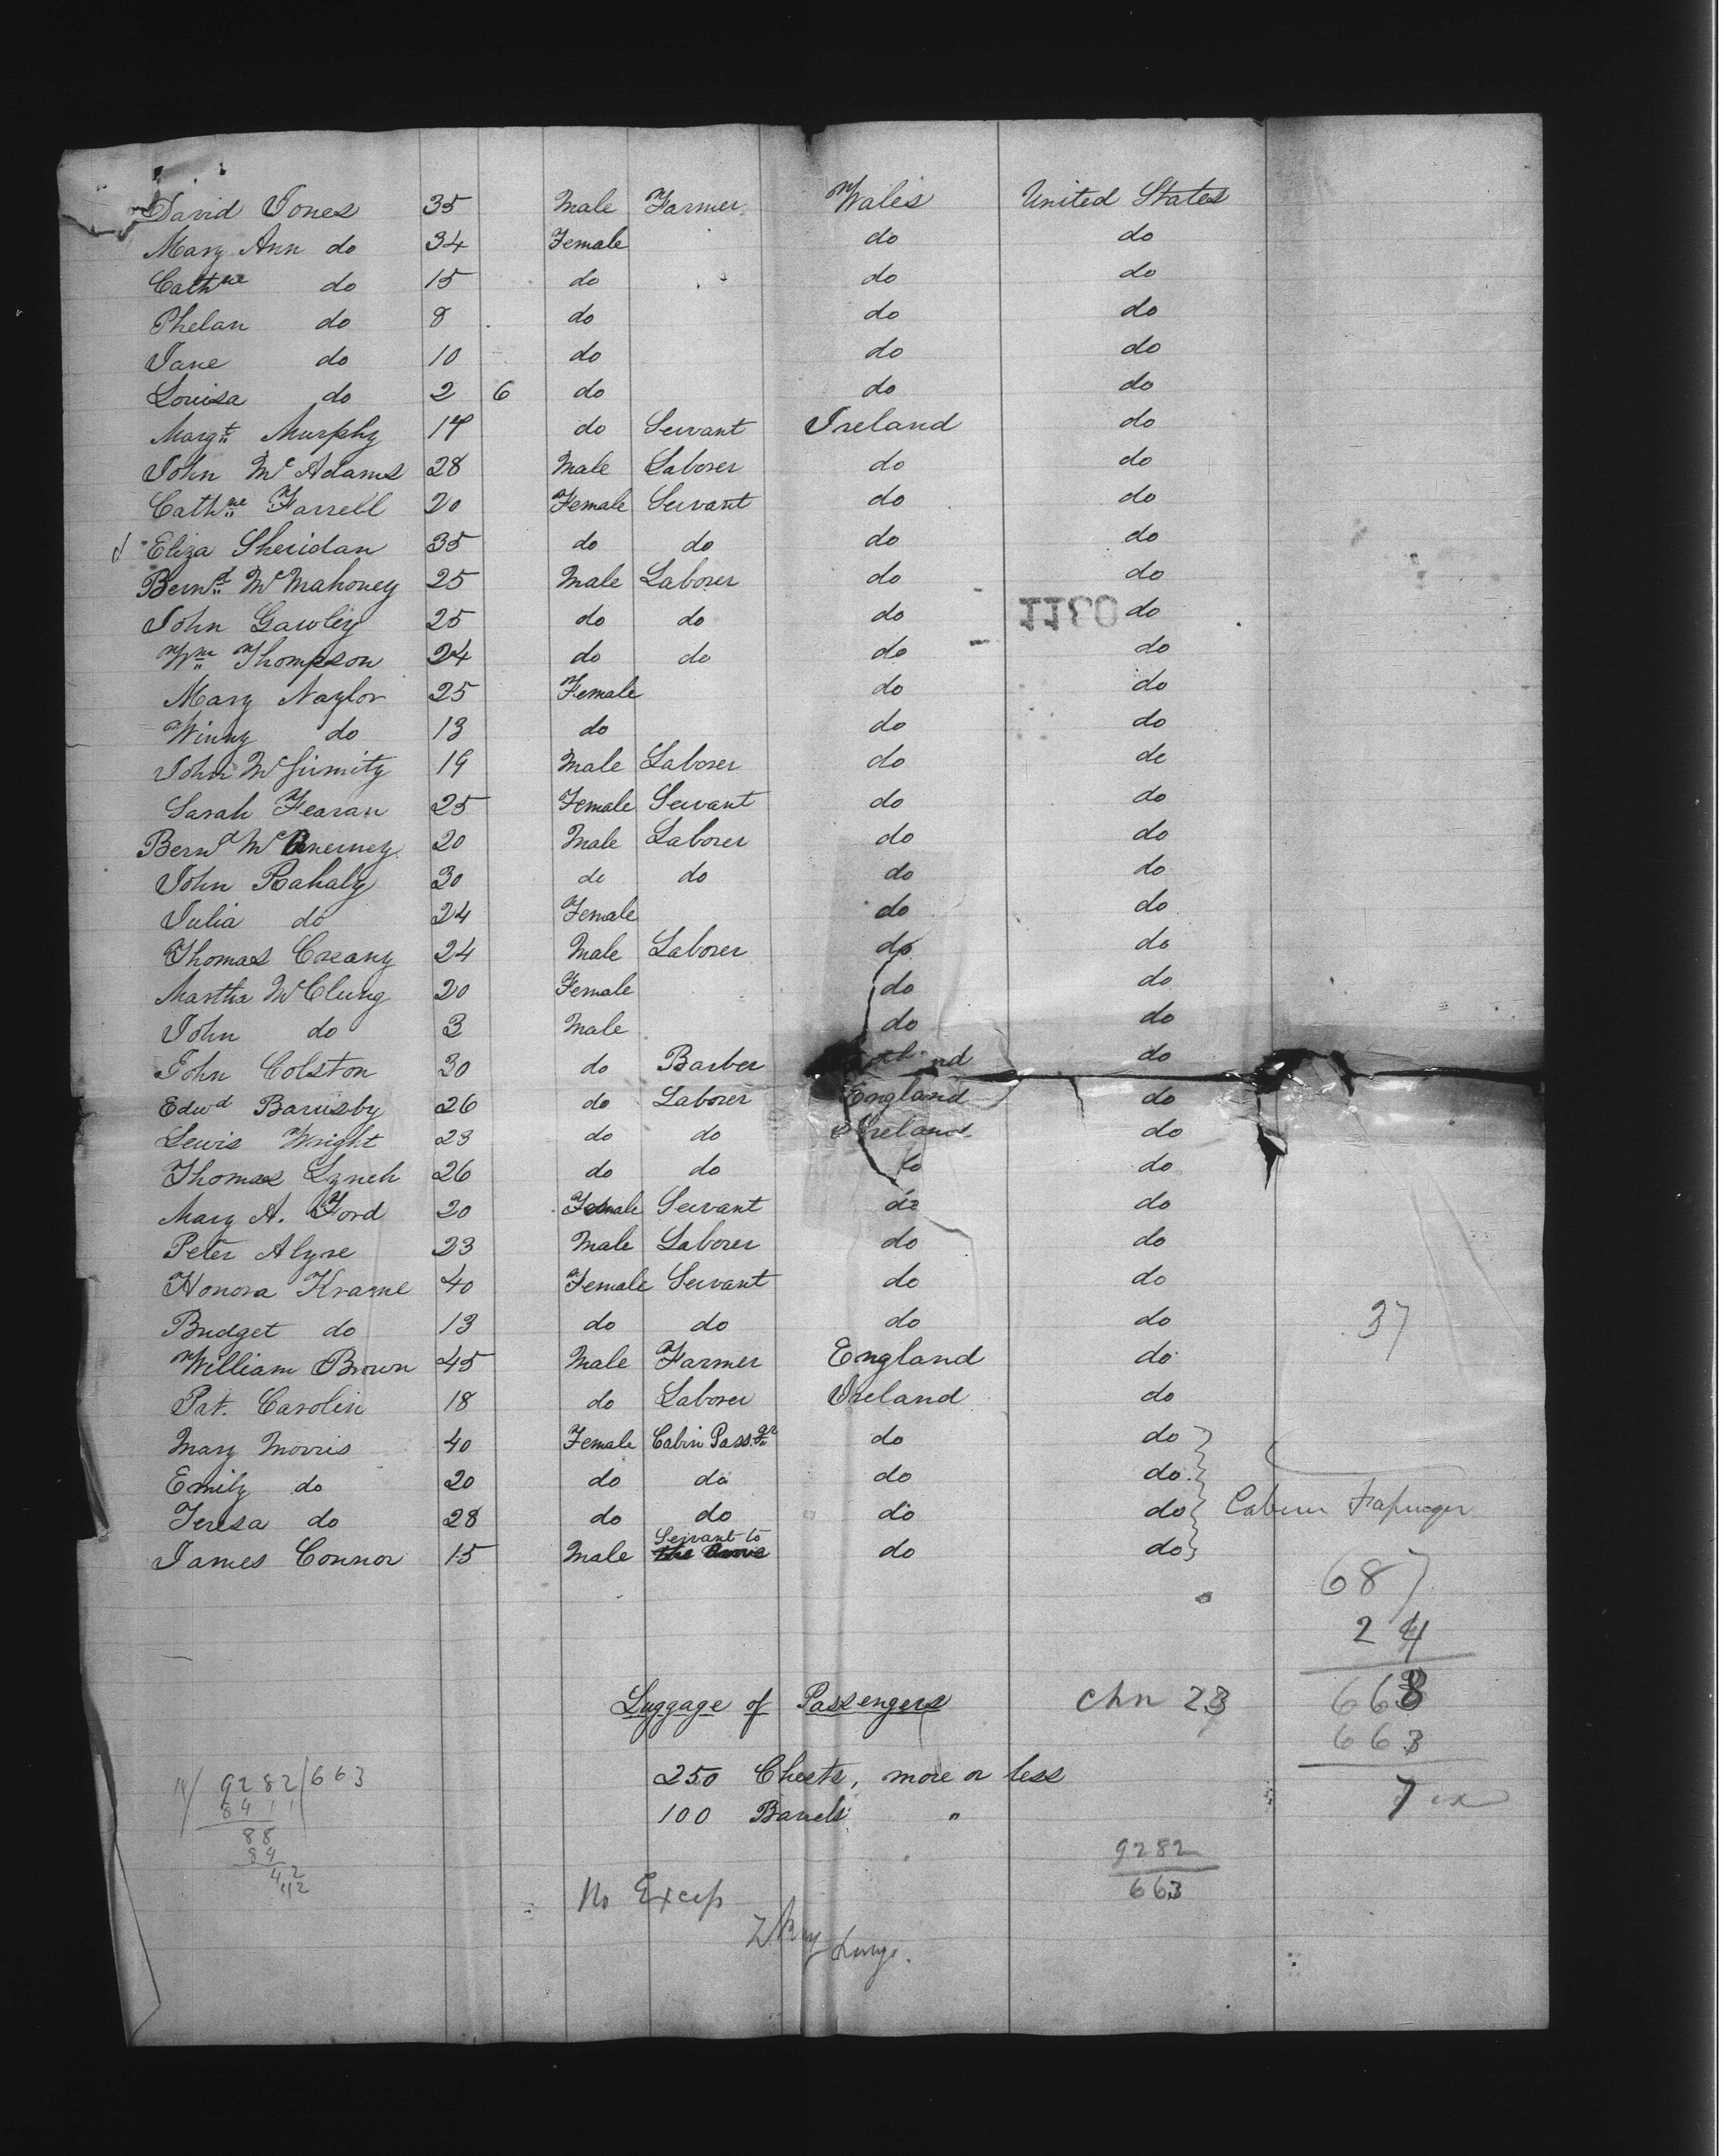 David Jones 35 Male Farmer Wales United States
Mary Ann do 34 Female do do
Cathne do 15 do do do
Phelan do 8 do do do
Jane do 10 do do do
Louisa do 2 6 do do do
Margt Murphy 17 do Servant Ireland do
John McAdams 28 Male Laborer do do
Cathne Farrell 20 Female Servant do do
Eliza Sheridan 35 do do do do
Bernd McMahoney 25 Male Laborer do do
John Gawley 25 do do do do
1130
Wm Thompson 24 do do do do
Mary Naylor 25 Female do do
Winny do 13 do do do
John 19 Male Laborer do do
Sarah Fearan 25 Female Servant do do
Bernd 20 Male Laborer do do
John Rahaly 30 do do do do
Julia do 24 Female do do
Thomas Creany 24 Male Laborer do do
Martha McClung 20 Female do do
John do 3 Male do do
John Colston 30 do Barber do
Edwd Barnsby 26 do Laborer England do
Lewis Wright 23 do do Ireland do
Thomas Lynch 26 do do do do
Mary A. Ford 20 Female Servant do do
Peter Alyse 23 Male Laborer do do
Honora 40 Female Servant do do
Bridget do 13 do do do do
37
William Brown 45 Male Farmer England do
Pat. Carolin 18 do Laborer Ireland do
Mary Morris 40 Female Cabin Passgr do do
Emily do 20 do do do do
Teresa do 28 do do do do
Cabin Passenger
James Connor 15 Male Servant to the above do do
687
24
668
Luggage of Passengers
chn 23
663
250 Chests, more or less
7 ex
100 Barrels "
14/ 9282/663
8411
88
84
42
42
9282
663
No Excep